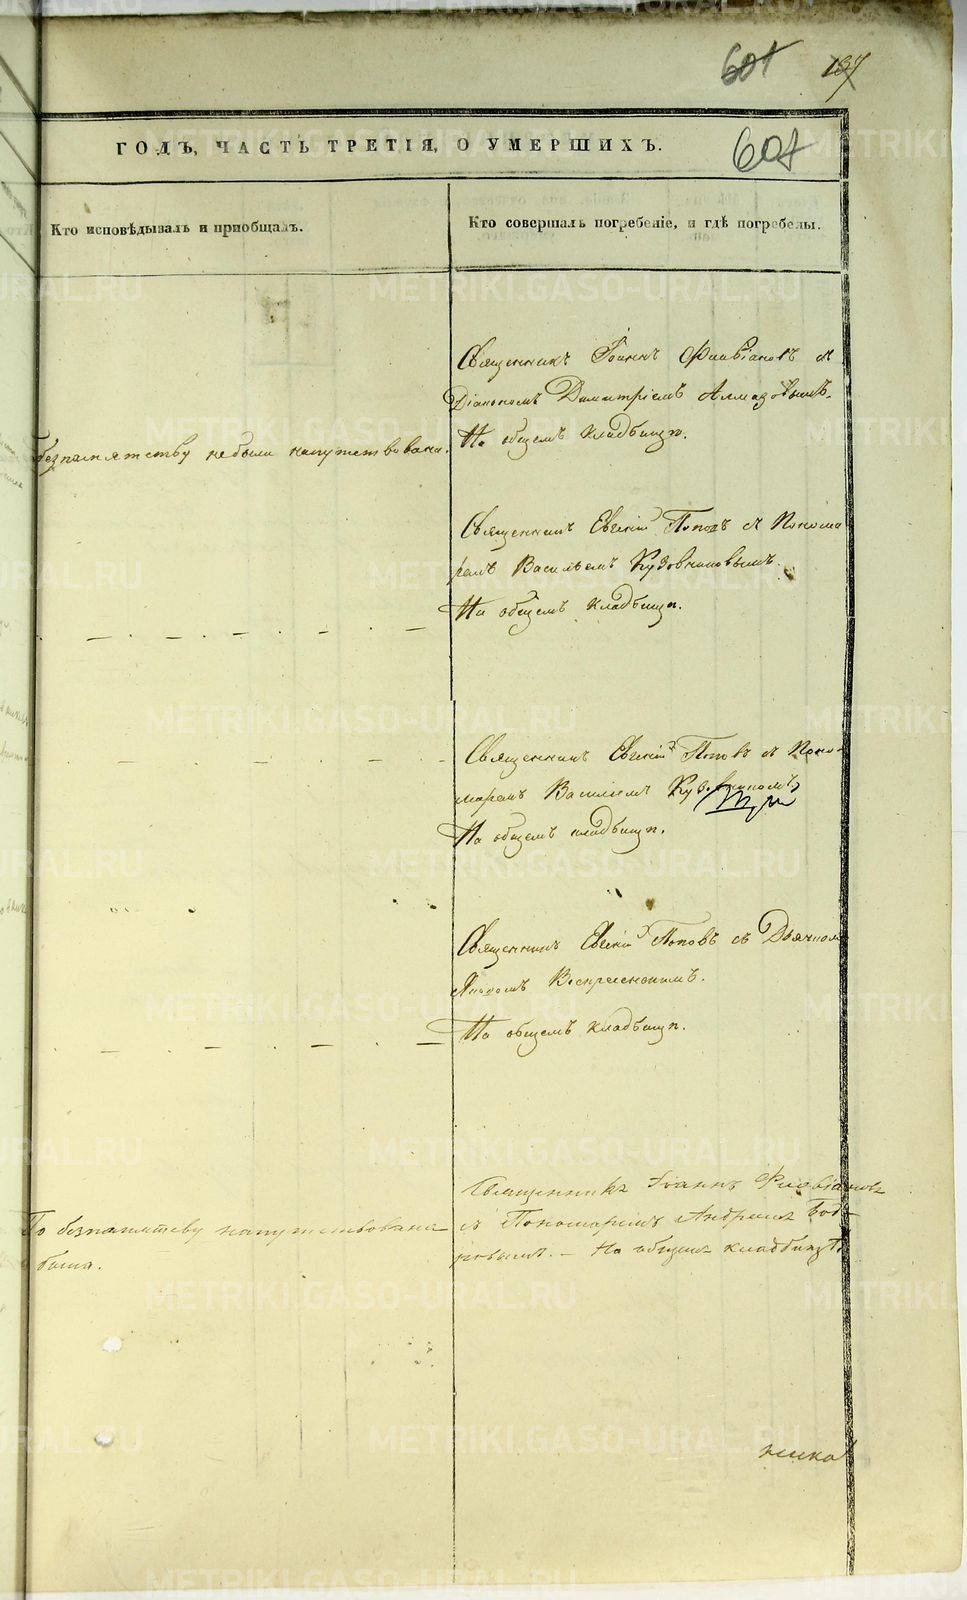 601 197
ГОДЪ, ЧАСТЬ ТРЕТІЯ, О УМЕРШИХЪ. 601
Кто исповѣдывалъ и пріобщалъ.
Кто совершалъ погребеніе, и гдѣ погребены.
Священникъ Іоаннъ Флавіановъ съ
Діакономъ Димитріемъ Алмазовымъ.
На общемъ кладбищѣ.
безпамятству не были напутствована.
Священникъ Евгеній Поповъ съ Понома
ремъ Васильемъ Кудовниковымъ.
На общемъ кладбищѣ.
Священникъ Евгеній Поповъ съ Поно-
маремъ Василіемъ
На общемъ кладбищѣ.
Священникъ Евгеній Поповъ съ Дьячкомъ
Яковомъ Воскресенскимъ.
На общемъ кладбищѣ.
Священникъ Іоаннъ Флавіановъ
съ Пономаремъ Андреемъ Бод-
ровымъ. — На общемъ кладбищѣ.
По безпамятству напутствована
была.
METRIKI.GASO-URAL.RU